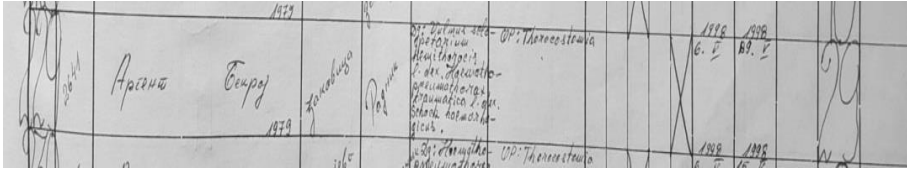 1979
2641
Аргент Бекрој
Ђаковица
Радник
Dg: Vulnus sclo-
petarium
hemithoracis
l. dex. Haematho-
pneumathorax
traumatica l. dex.
Schock haemorha-
gicus.
OP: Thorocostomia
1998 1998
6. V 29. V
1979
Dg: Haematho-
pneumathorax
OP: Thorocostomia
1998 1998